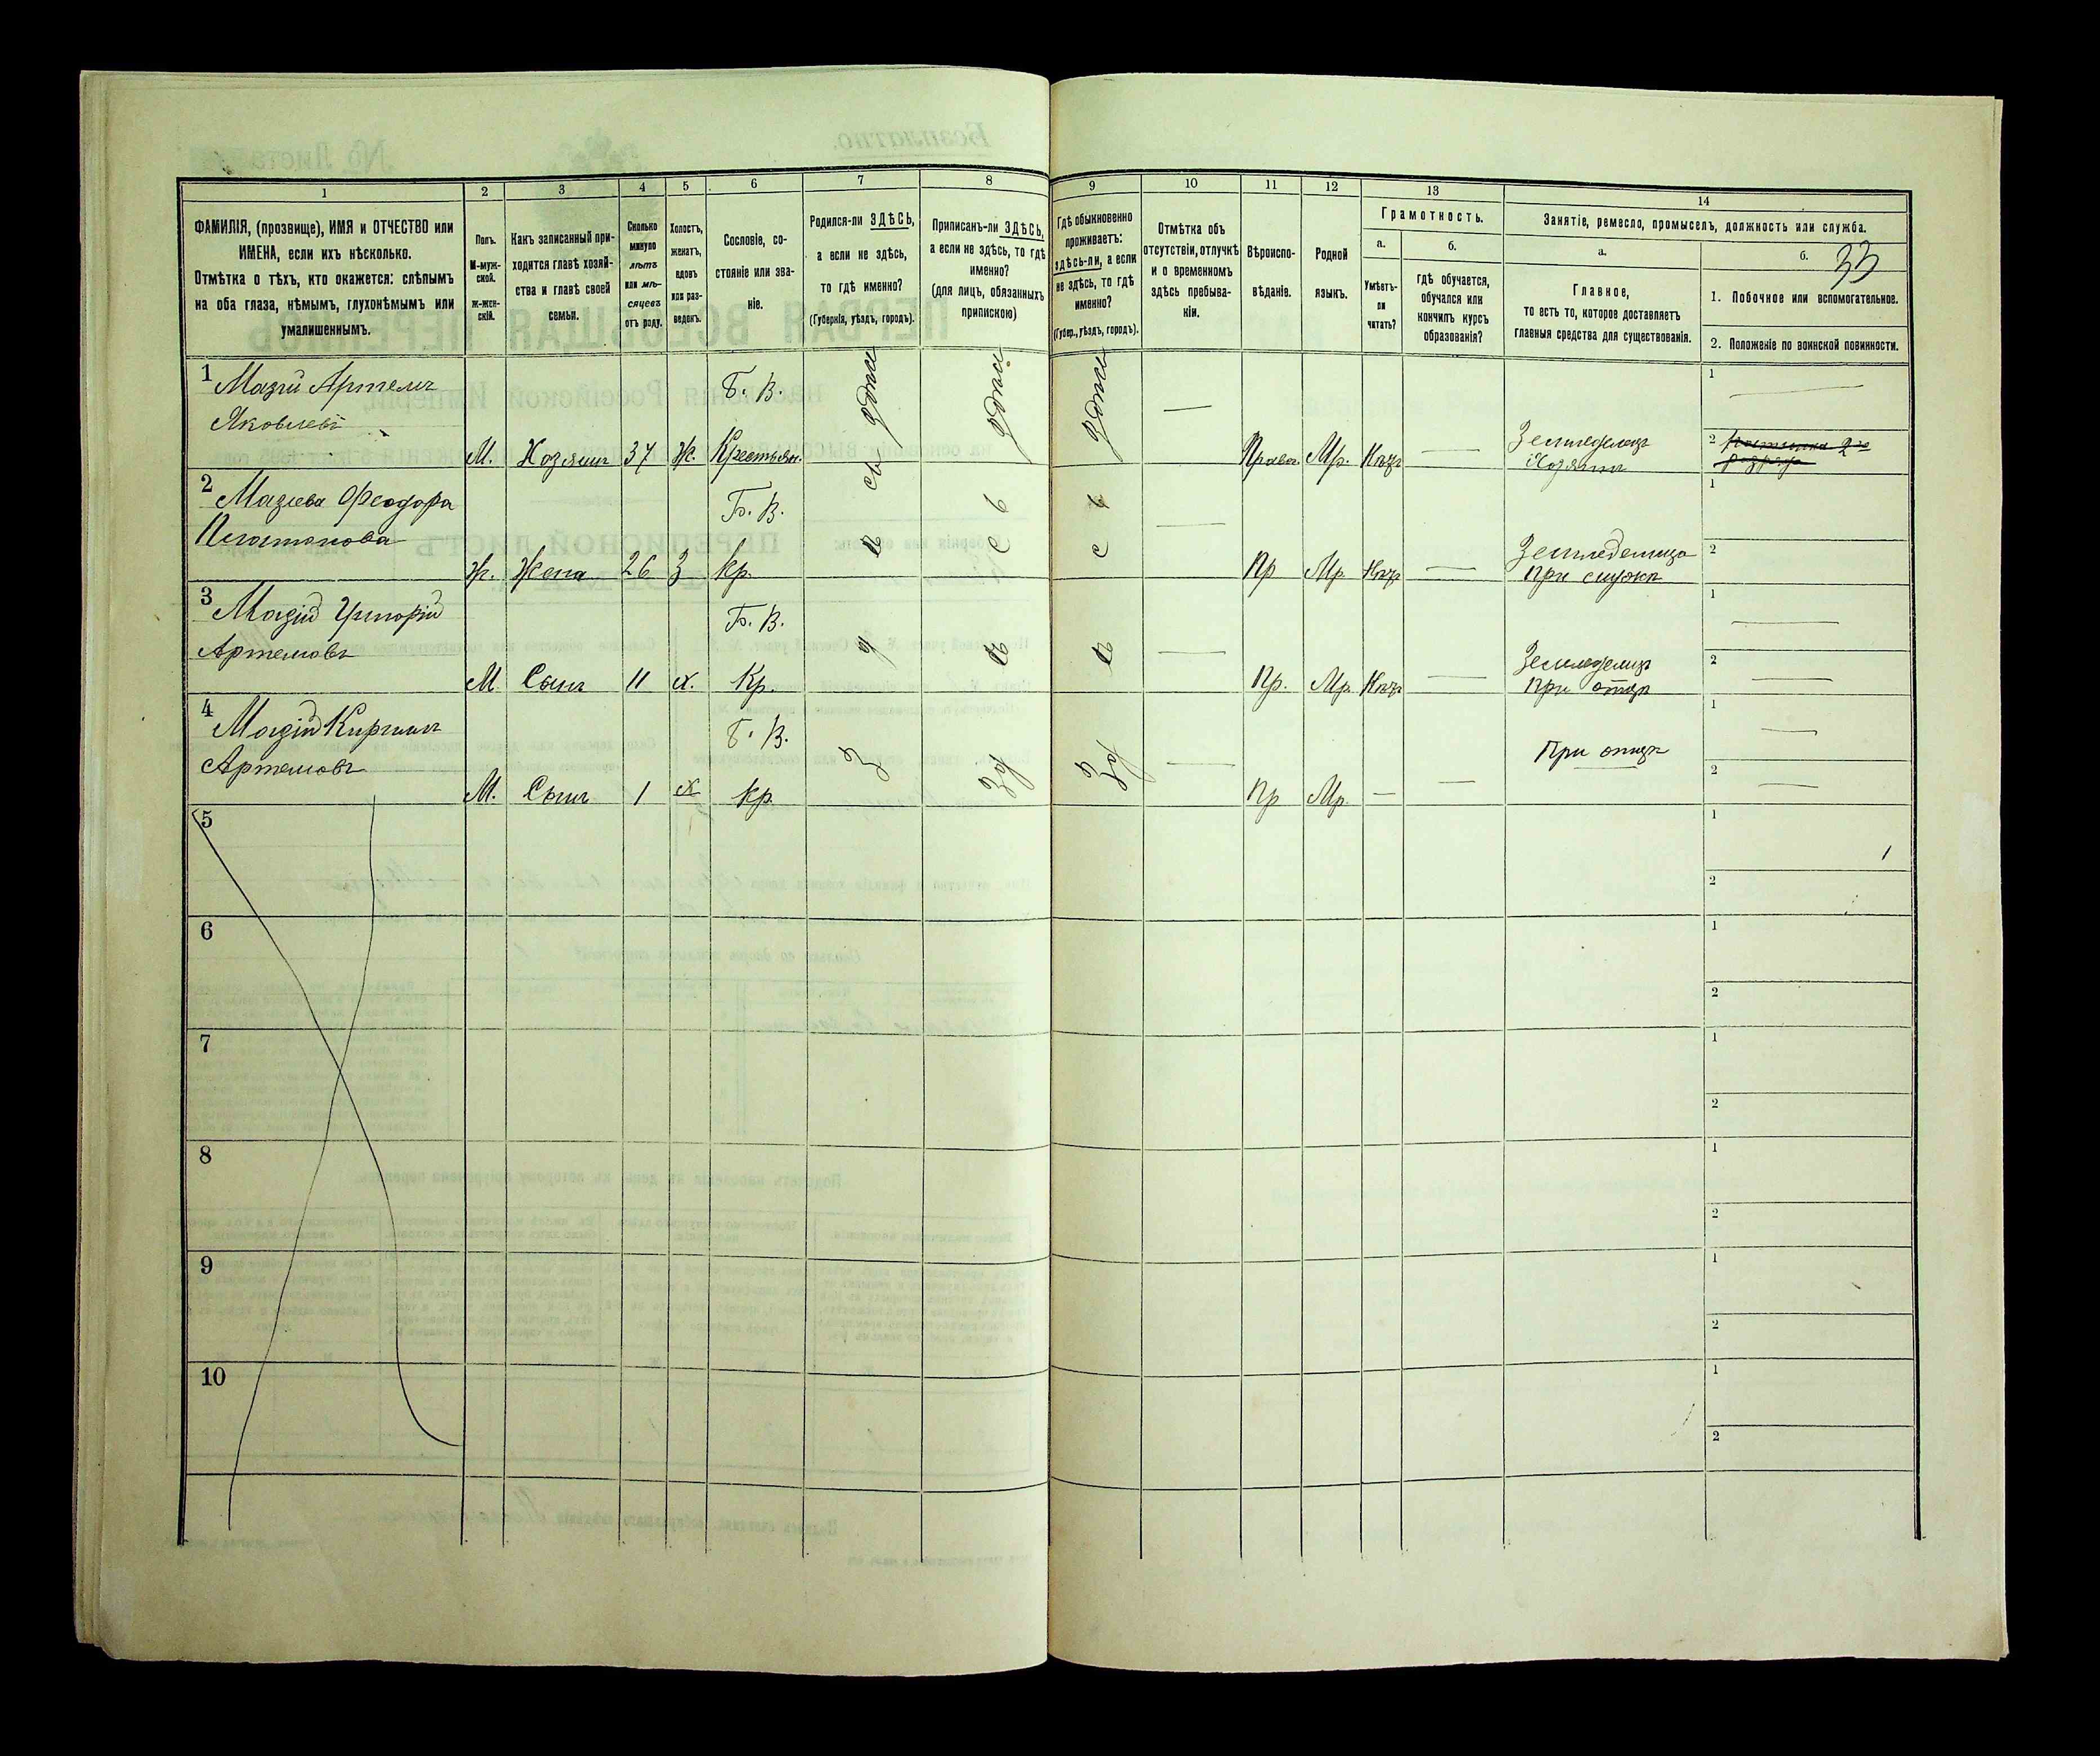 1 2 3 4 5 6 7 8 9 10 11 12 13 14
ФАМИЛІЯ, (прозвище), ИМЯ и ОТЧЕСТВО или
ИМЕНА, если ихъ нѣсколько.
Отмѣтка о тѣхъ, кто окажется: слѣпымъ
на оба глаза, нѣмымъ, глухонѣмымъ или
умалишеннымъ.
Полъ.
М-муж-
ской.
ж-жен-
скій.
Какъ записанный при-
ходится главѣ хозяй-
ства и главѣ своей
семьи.
Сколько
минуло
лѣтъ
или мѣ-
сяцевъ
отъ роду.
Холостъ,
женатъ,
вдовъ
или раз-
веденъ.
Сословіе, со-
стояніе или зва-
ніе.
Родился-ли ЗДѢСЬ,
а если не здѣсь,
то гдѣ именно?
(Губернія, уѣздъ, городъ).
Приписанъ-ли ЗДѢСЬ,
а если не здѣсь, то гдѣ
именно?
(для лицъ, обязанныхъ
припискою)
Гдѣ обыкновенно
проживаетъ:
здѣсь-ли, а если
не здѣсь, то гдѣ
именно?
(Губер., уѣздъ, городъ).
Отмѣтка объ
отсутствіи, отлучкѣ
и о временномъ
здѣсь пребыва-
ніи.
Вѣроиспо-
вѣданіе.
Родной
языкъ.
Грамотность.
а.
Умѣетъ-
ли
читать?
б.
Гдѣ обучается,
обучался или
кончилъ курсъ
образованія?
Занятіе, ремесло, промыселъ, должность или служба.
а.
Главное,
то есть то, которое доставляетъ
главныя средства для существованія.
б.
33
1. Побочное или вспомогательное.
2. Положеніе по воинской повинности.
1 Мазій Артемъ
Яковлевъ
М. Хозяинъ 37 Ж.
Б. В.
Крестьян.
Правос. Мр. Нѣтъ
Земледѣлецъ
Хозяинъ
1
2
2 Мазіева Феодора
Ж. Жена 26 З
Б. В.
Кр.
Пр Мр. Нѣтъ
1
2
3 Мазій Григорій
Артемовъ
М Сынъ 11 х.
Б. В.
Кр.
Пр. Мр. Нѣтъ
Земледѣлецъ
При отцѣ
1
2
4 Мазій Кирилъ
Артемовъ
М. Сынъ 1 х
Б. В.
Кр.
Пр Мр.
При отцѣ
1
2
5 1
2
6 1
2
7 1
2
8 1
2
9 1
2
10 1
2